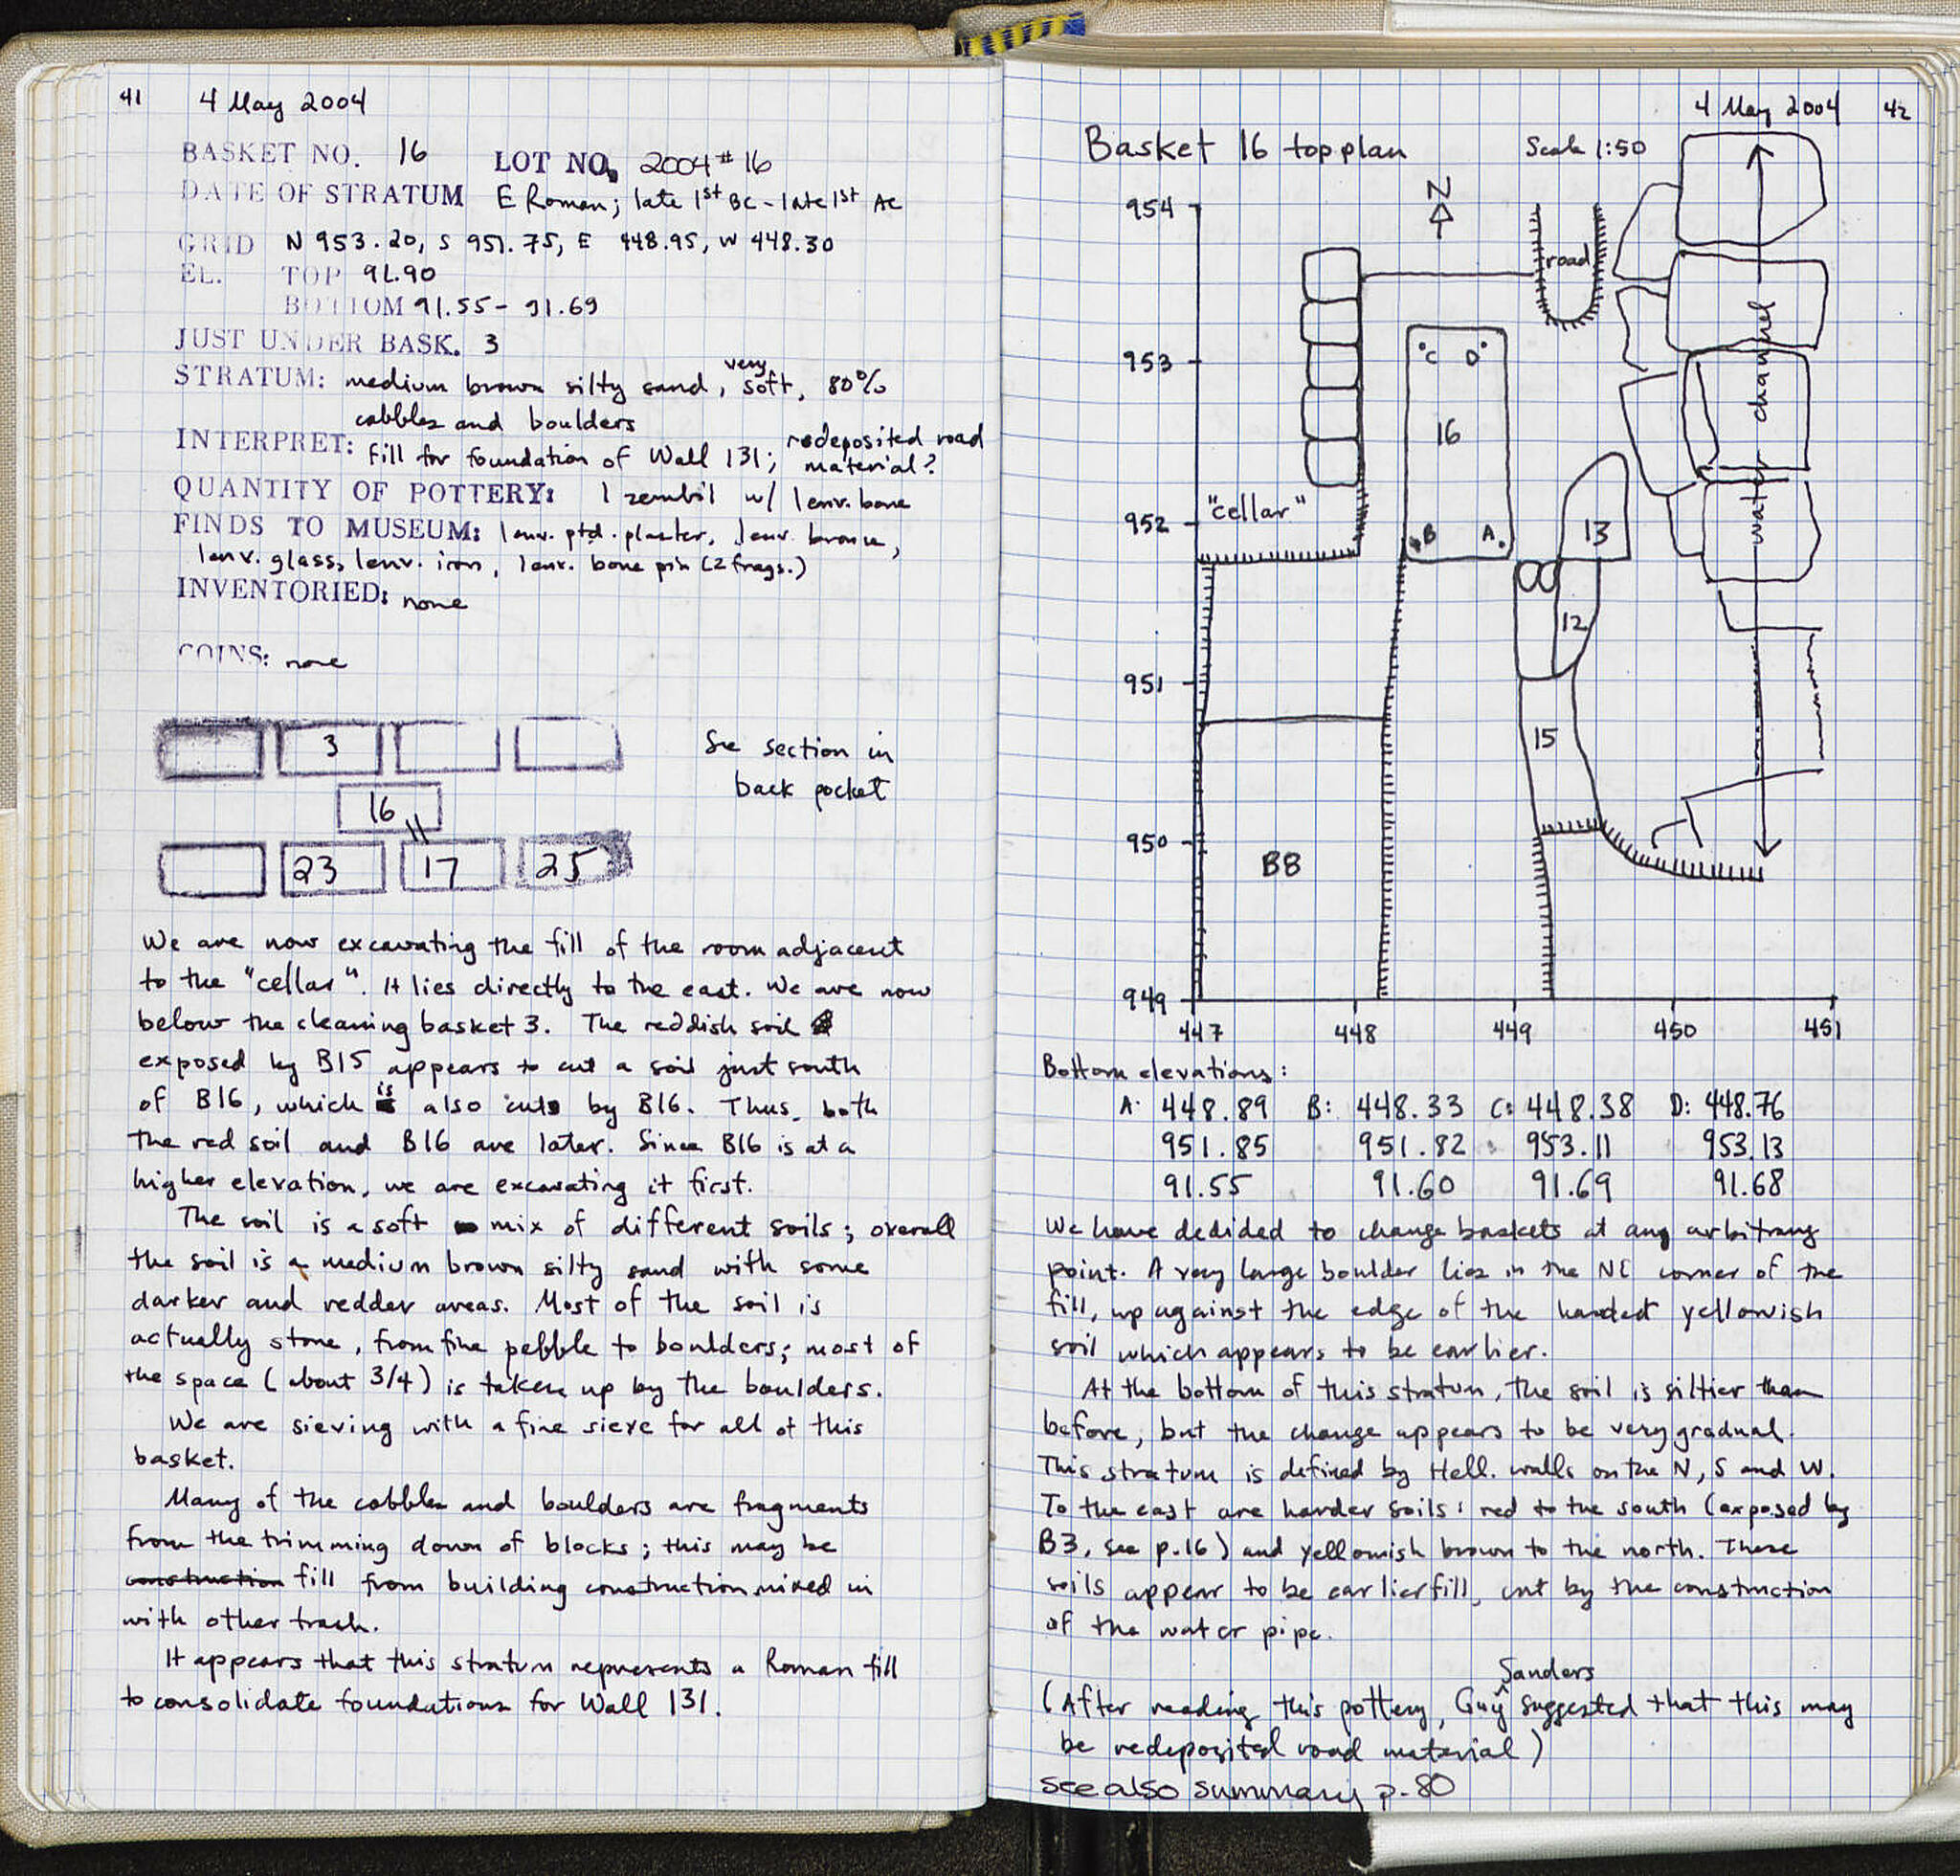 41 4 May 2004
BASKET NO. 16 LOT NO. 2004#16
DATE OF STRATUM E Roman; late 1st BC - late 1st AC
GRID N 953.20, S 951.75, E 448.95, W 448.30
EL. TOP 91.90
BOTTOM 91.55 - 91.69
JUST UNDER BASK. 3
STRATUM: medium brown silty sand, very soft, 80%
cobbles and boulders
INTERPRET: fill for foundation of Wall 131; redeposited road material?
QUANTITY OF POTTERY: 1 zembil w/ 1 env. bone
FINDS TO MUSEUM: 1 env. ptd. plaster, 1 env. bronze,
1 env. glass, 1 env. iron, 1 env. bone pin (2 frags.)
INVENTORIED: none
COINS: none
3
16
23 17 25
See section in
back pocket
We are now excavating the fill of the room adjacent
to the "cellar". It lies directly to the east. We are now
below the cleaning basket 3. The reddish soil
exposed by B15 appears to cut a soil just south
of B16, which is also cut by B16. Thus, both
the red soil and B16 are later. Since B16 is at a
higher elevation, we are excavating it first.
The soil is a soft mix of different soils; overall
the soil is a medium brown silty sand with some
darker and redder areas. Most of the soil is
actually stone, from fine pebble to boulders; most of
the space (about 3/4) is taken up by the boulders.
We are sieving with a fine sieve for all of this
basket.
Many of the cobbles and boulders are fragments
from the trimming down of blocks; this may be
construction fill from building construction mixed in
with other trash.
It appears that this stratum represents a Roman fill
to consolidate foundations for Wall 131.
4 May 2004 42
Basket 16 top plan Scale 1:50
N
954
953
952
951
950
949
447 448 449 450 451
road
water channel
"cellar"
C D
16
B A
13
12
15
B8
Bottom elevations:
A: 448.89 B: 448.33 C: 448.38 D: 448.76
951.85 951.82 953.11 953.13
91.55 91.60 91.69 91.68
We have dedided to change baskets at any arbitrary
point. A very large boulder lies in the NE corner of the
fill, up against the edge of the harded yellowish
soil which appears to be earlier.
At the bottom of this stratum, the soil is siltier than
before, but the change appears to be very gradual.
This stratum is defined by Hell. walls on the N, S and W.
To the east are harder soils: red to the south (exposed by
B3, see p.16) and yellowish brown to the north. These
soils appear to be earlier fill, cut by the construction
of the water pipe.
(After reading this pottery, Guy Sanders suggested that this may
be redeposited road material)
see also summary p. 80